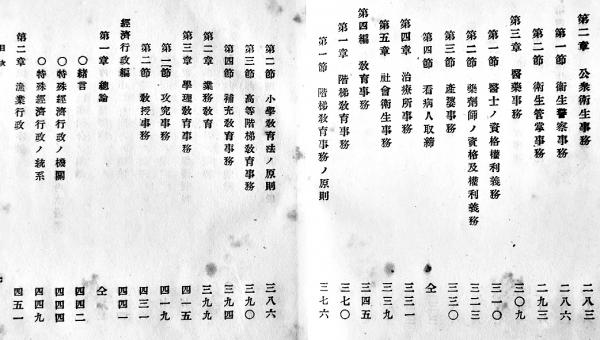 第二章 公衆衞生事務 二八三
第一節 衞生警察事務 二八六
第二節 衞生管掌事務 二九三
第三章 醫藥事務 三〇九
第一節 醫士ノ資格權利義務 三一〇
第二節 藥劑師ノ資格及權利義務 三二三
第三節 產婆事務 三三〇
第四節 看病人取締 仝
第四章 治療所事務 三三一
第五章 社會衞生事務 三三九
第四編 敎育事務 三四五
第一章 階梯敎育事務 三七〇
第一節 階梯敎育事務ノ原則 三七六
第二節 小學敎育法ノ原則 三八六
第三節 高等階梯敎育事務 三九〇
第四節 補充敎育事務 三九四
第二章 業務敎育 三九九
第三章 學理敎育事務 四一五
第一節 攻究事務 四一九
第二節 敎授事務 四三一
經濟行政編 四四一
第一章 總論 仝
〇緒言 四四二
〇特殊經濟行政ノ機關 四四四
〇特殊經濟行政ノ統系 四四九
第二章 漁業行政 四五一
目次